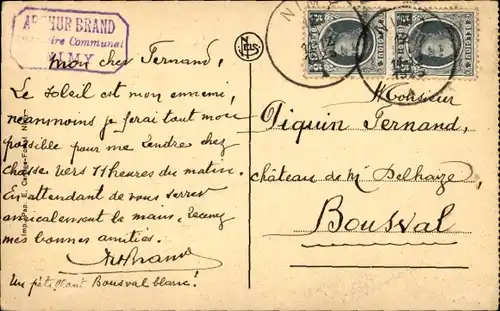 ARTHUR BRAND
Communal
NIMY
Mon cher Fernand,
Le soleil est mon ennemi,
neanmoins je ferai tout mon
possible pour me rendre chez
chasse vers 11 heures du matin.
En attendant de vous serrer
amicalement la main, recevez
mes bonnes amitiés.
Un petit Bousval blanc!
NELS
NIMY
Monsieur
Piquin Fernand,
château de Mr Delhaize,
Bousval
Imp. Pap. E.